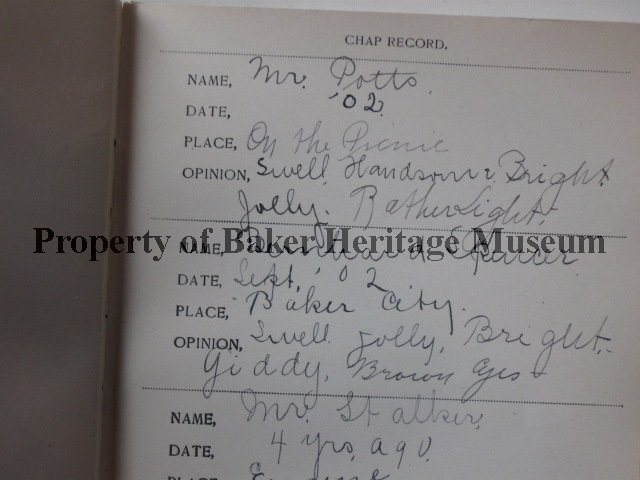 CHAP RECORD.
NAME, Mr. Potts.
DATE, '02.
PLACE, On the Picnic
OPINION, Swell, Handsome, Bright.
Jolly. Rather Light.
Property of Baker Heritage Museum
NAME, Spencer
DATE, Sept. '02
PLACE, Baker City.
OPINION, Swell, jolly, Bright.
Giddy, Brown Eyes
NAME, Mr. Stalker.
DATE, 4 yrs. ago.
PLACE,